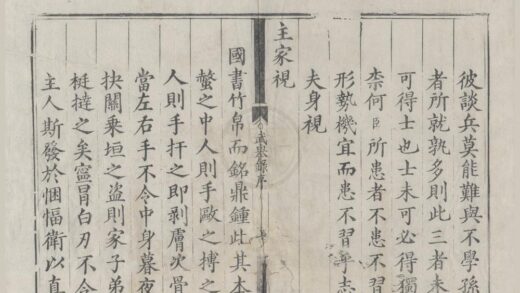 彼談兵莫能難與不學孫
者所就孰多則此三者未
可得士也士未可必得獨
柰何臣所患者不患不習
形勢機宜而患不習乎志
夫身視
主家視
武舉錄序
國書竹帛而銘鼎鍾此其本
螫之中人則手毆之搏之
人則手扞之即剥膚次骨
當左右手不令中身暮夜
抉關乘垣之盗則家子弟
梃撻之矣寧冐白刃不令
主人斯發於悃愊衛以真